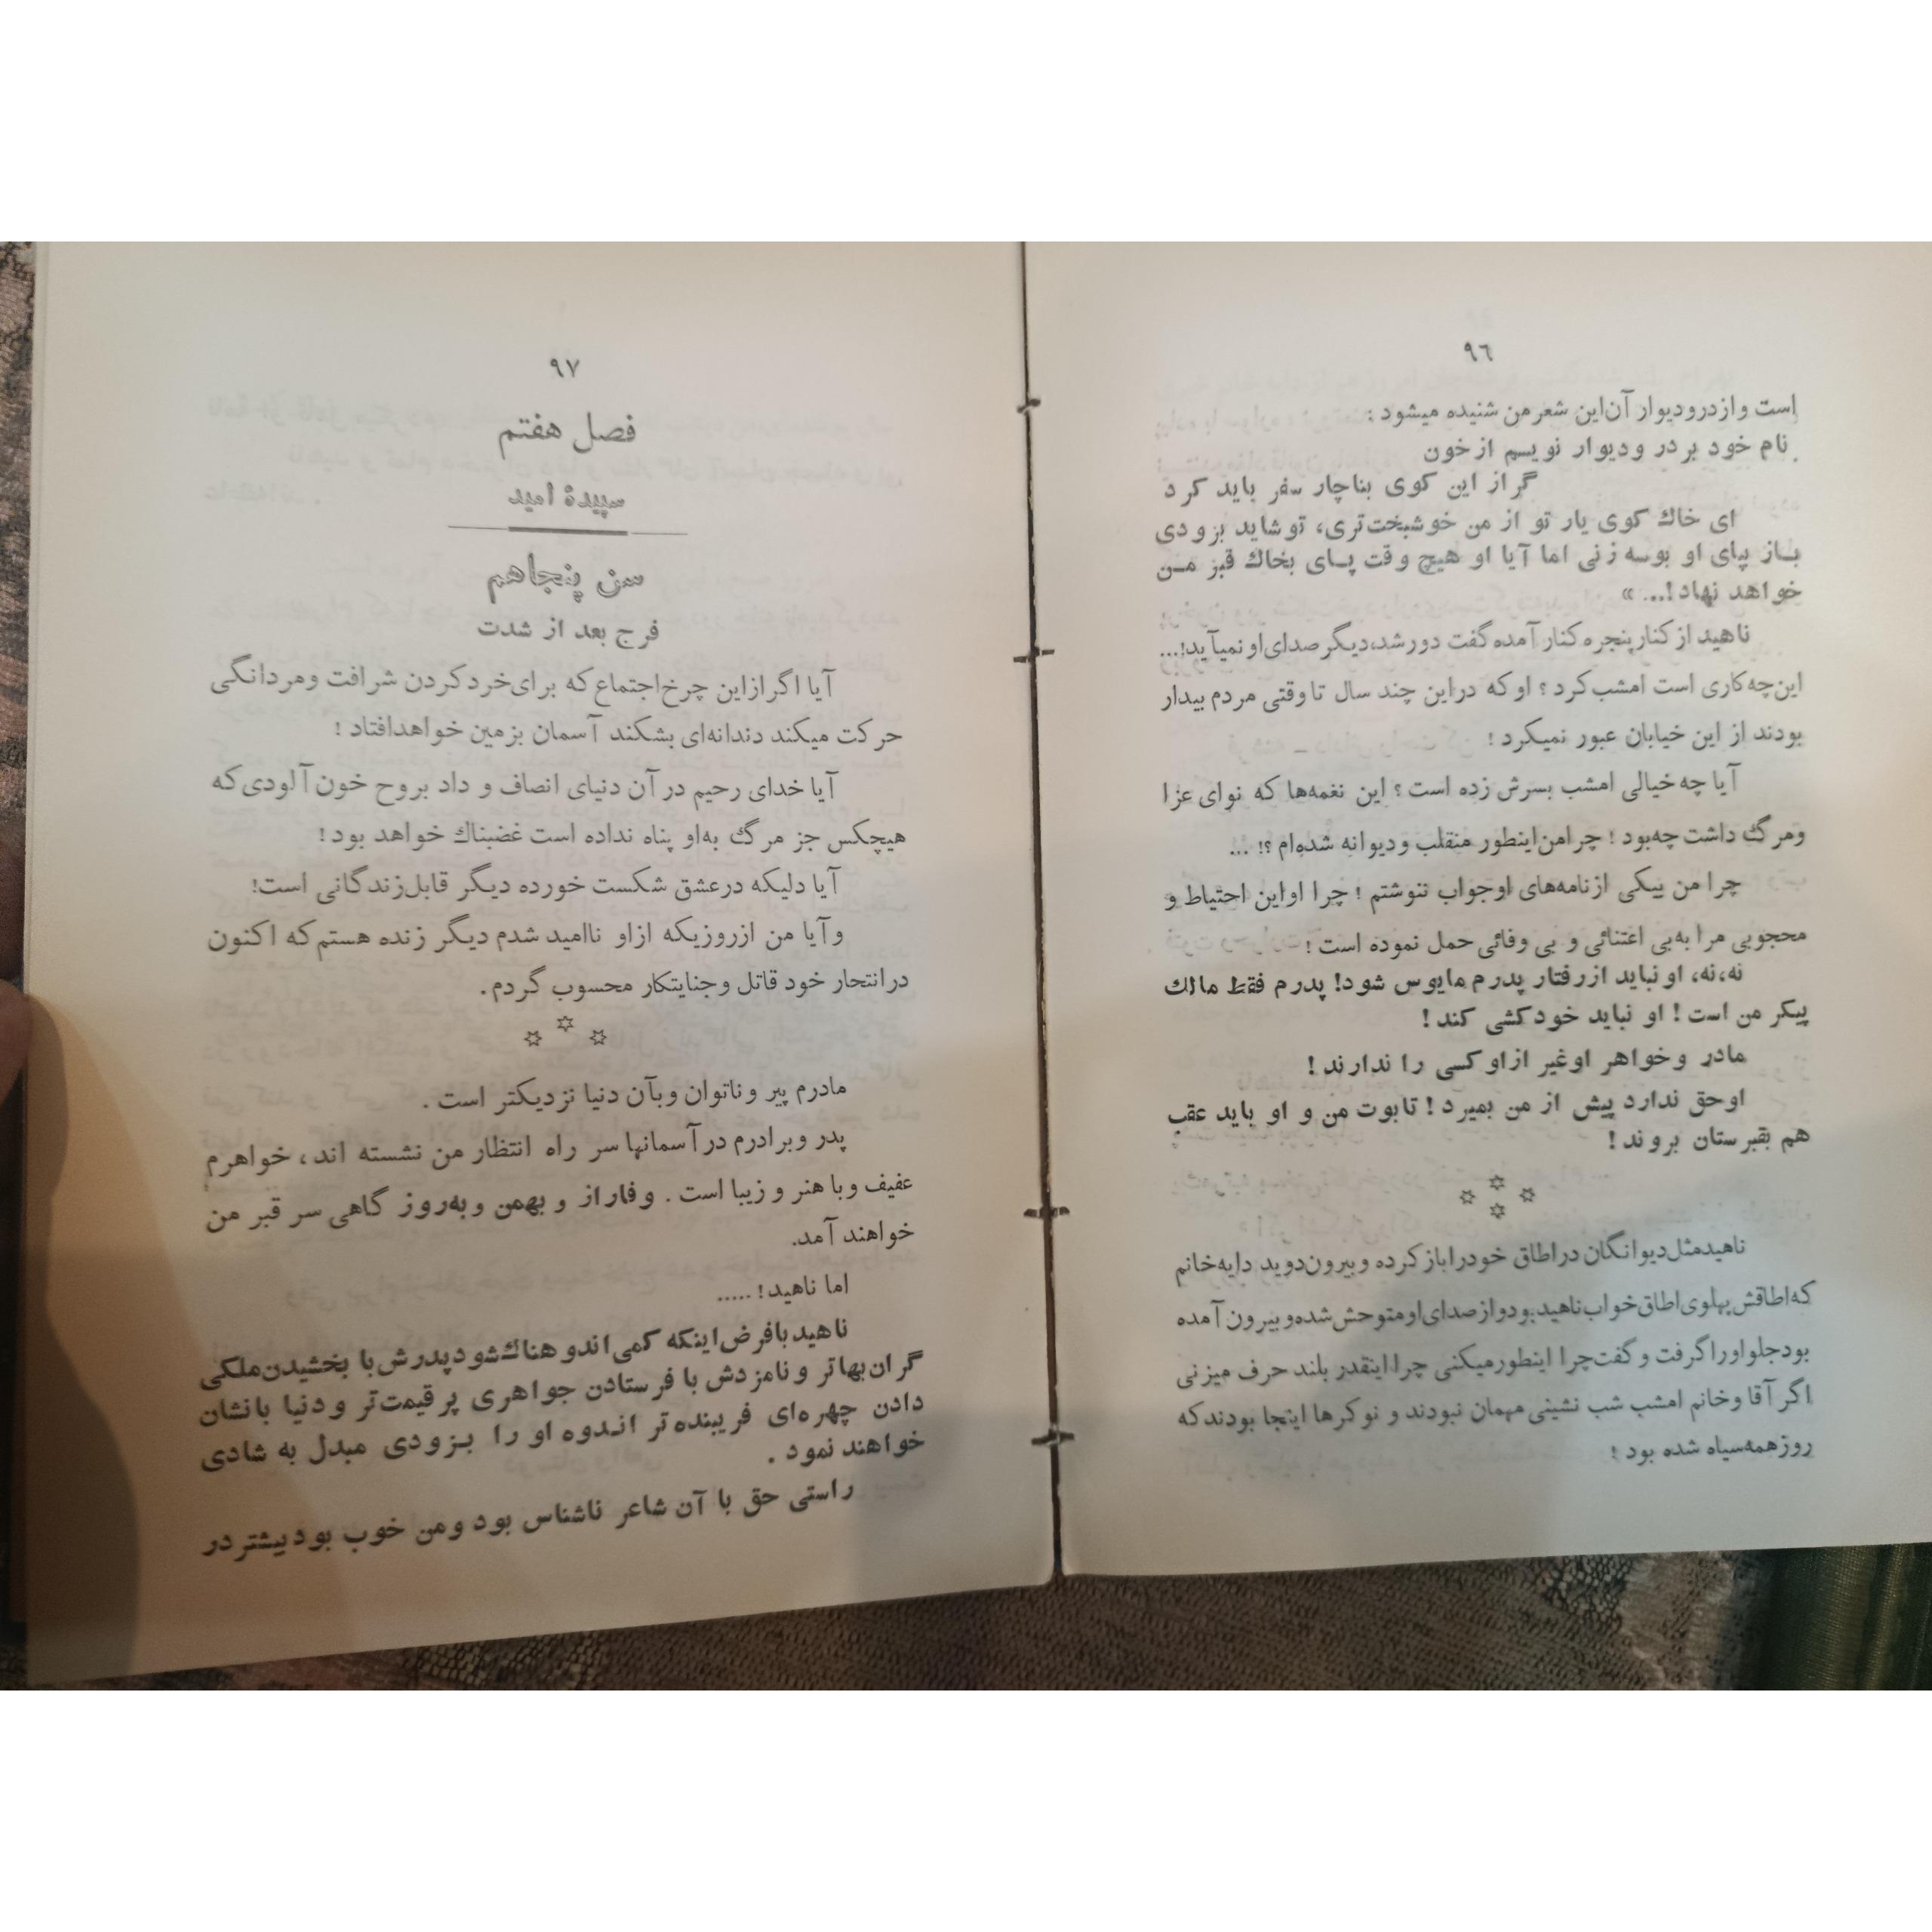 ۹۶
است و از در و دیوار آن این شعر من شنیده میشود :
نام خود بر در و دیوار نویسم از خون
گر از این کوی بناچار سفر باید کرد
ای خاك کوی یار تو از من خوشبخت‌تری، تو شاید بزودی
باز بپای او بوسه زنی اما آیا او هیچ وقت پای بخاك قبر من
خواهد نهاد!... »
ناهید از کنار پنجره کنار آمده گفت دور شد، دیگر صدای او نمیآید!...
این چه کاری است امشب کرد ؟ او که در این چند سال تا وقتی مردم بیدار
بودند از این خیابان عبور نمیکرد !
آیا چه خیالی امشب بسرش زده است ؟ این نغمه‌ها که نوای عزا
و مرگ داشت چه بود ! چرا من اینطور منقلب و دیوانه شده‌ام ؟! ...
چرا من بیکی از نامه‌های او جواب ننوشتم ! چرا او این احتیاط و
محجوبی مرا به بی اعتنائی و بی وفائی حمل نموده است !
نه، نه، او نباید از رفتار پدرم مایوس شود! پدرم فقط مالك
پیکر من است ! او نباید خودکشی کند !
مادر و خواهر او غیر از او کسی را ندارند !
او حق ندارد پیش از من بمیرد ! تابوت من و او باید عقب
هم بقبرستان بروند !
ناهید مثل دیوانگان در اطاق خود را باز کرده و بیرون دوید دایه خانم
که اطاقش پهلوی اطاق خواب ناهید بود و از صدای او متوحش شده و بیرون آمده
بود جلو او را گرفت و گفت چرا اینطور میکنی چرا اینقدر بلند حرف میزنی
اگر آقا و خانم امشب شب نشینی مهمان نبودند و نوکرها اینجا بودند که
روز همه سیاه شده بود !
۹۷
فصل هفتم
سپیدهٔ امید
سن پنجاهم
فرج بعد از شدت
آیا اگر از این چرخ اجتماع که برای خرد کردن شرافت و مردانگی
حرکت میکند دندانه‌ای بشکند آسمان بزمین خواهد افتاد !
آیا خدای رحیم در آن دنیای انصاف و داد بروح خون آلودی که
هیچکس جز مرگ به او پناه نداده است غضبناك خواهد بود !
آیا دلیکه در عشق شکست خورده دیگر قابل زندگانی است!
و آیا من از روزیکه از او ناامید شدم دیگر زنده هستم که اکنون
در انتحار خود قاتل و جنایتکار محسوب گردم.
مادرم پیر و ناتوان و بآن دنیا نزدیکتر است .
پدر و برادرم در آسمانها سر راه انتظار من نشسته اند ، خواهرم
عفیف و با هنر و زیبا است . وفاراز و بهمن و به‌روز گاهی سر قبر من
خواهند آمد.
اما ناهید! .....
ناهید با فرض اینکه کمی اندوهناك شود پدرش با بخشیدن ملکی
گران بهاتر و نامزدش با فرستادن جواهری پر قیمت‌تر و دنیا با نشان
دادن چهره‌ای فریبنده تر اندوه او را بزودی مبدل به شادی
خواهند نمود .
راستی حق با آن شاعر ناشناس بود و من خوب بود بیشتر در